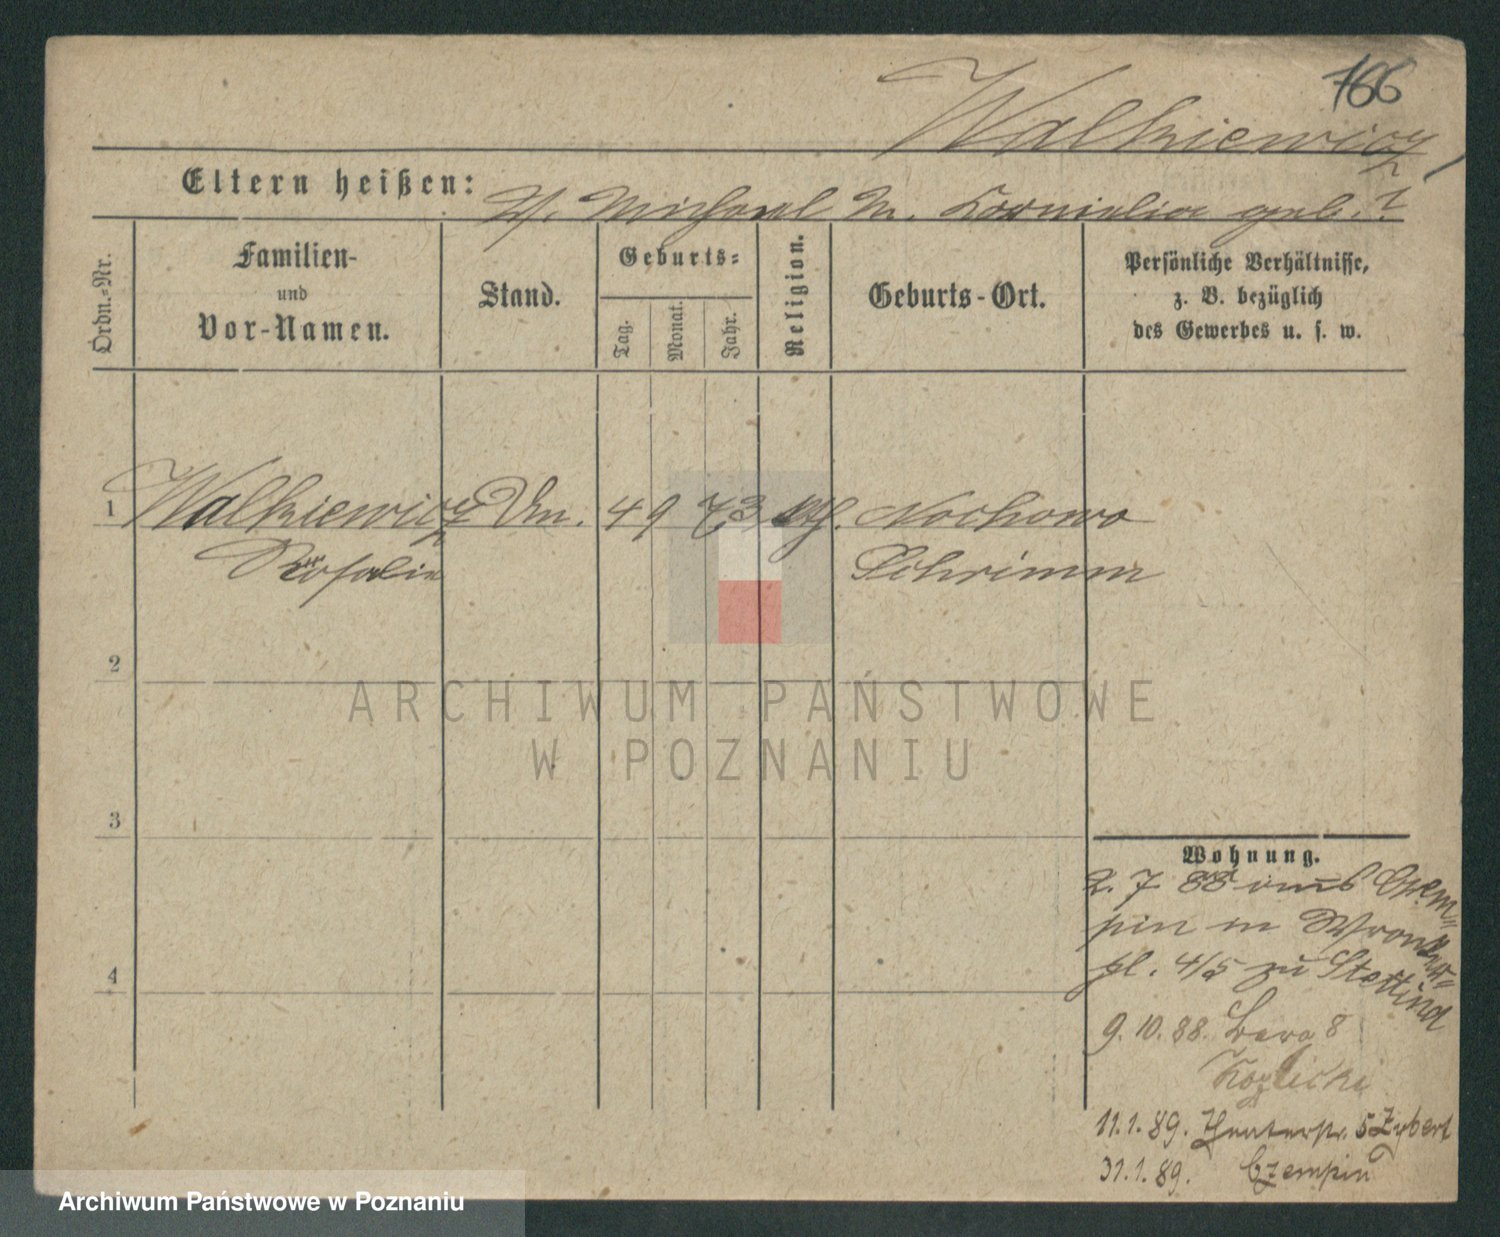 166
Walkiewicz
Eltern heißen: V. Michael M. Kornielia geb. ?
Ordn.-Nr.
Familien-
und
Vor-Namen.
Stand.
Geburts-
Tag.
Monat.
Jahr.
Religion.
Geburts-Ort.
Persönliche Verhältnisse,
z. B. bezüglich
des Gewerbes u. s. w.
1 Walkiewicz 4 9 73 Nochowo
Rosalie Schrimm
2
3
4
ARCHIWUM PAŃSTWOWE
W POZNANIU
Wohnung.
2. 7. 88 aus Czem-
pin in Wronker-
pl. 4/5 zu Stettind
9. 10. 88.
Kozlicki
11. 1. 89. 5 Zybert
31. 1. 89. Czempin
Archiwum Państwowe w Poznaniu